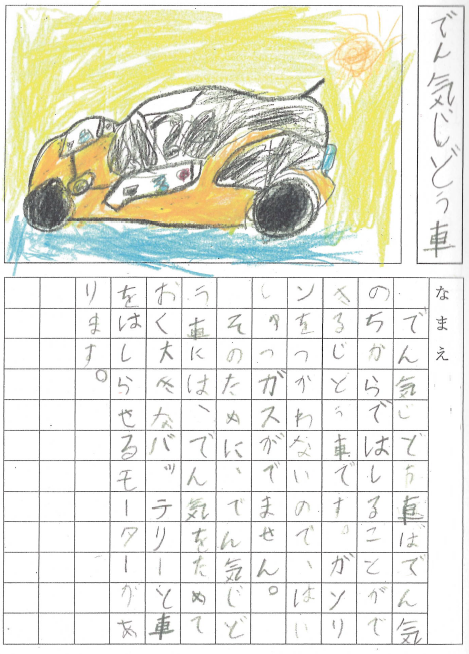 でん気じどう車
なまえ
でん気じどう車ばでん気
のちからではしることがで
きるじどう車です。ガソリ
ンをつかわないので、はい
しゅつガスがでません。
そのために、でん気じど
う車には、でん気をためて
おく大きなバッテリーと車
をはしらせるモーターがあ
ります。